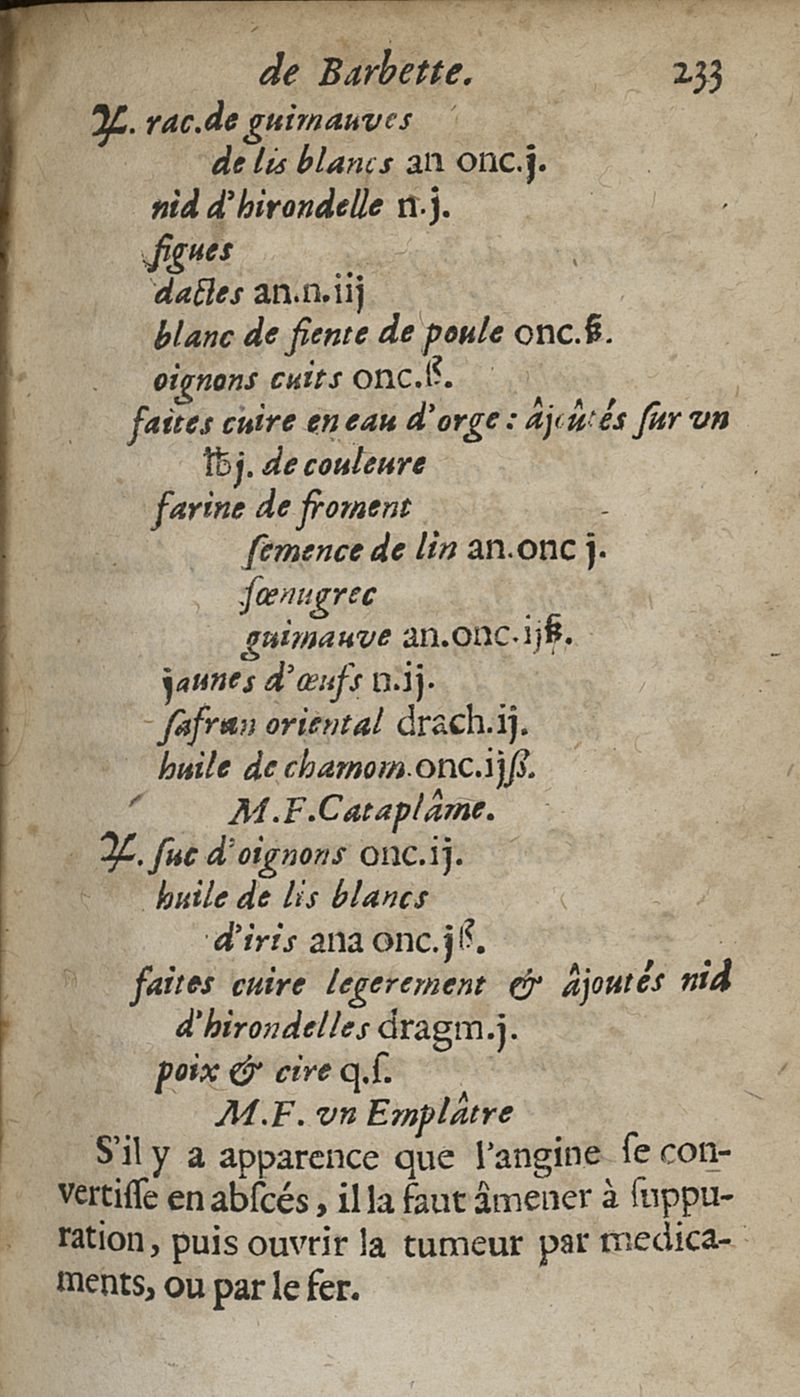 de Barbette. 233
℞. rac. de guimauves
de lis blancs an onc.j.
nid d'hirondelle n.j.
figues
dactes an.n.iij
blanc de fiente de poule onc.ß.
oignons cuits onc.ß.
faites cuire en eau d'orge : âjoûtés ſur vn
℔j. de couleure
farine de froment
ſemence de lin an.onc j.
fœnugrec
guimauve an.onc.ijß.
jaunes d'œufs n.ij.
ſafran oriental drach.ij.
huile de chamom.onc.ijß.
M.F.Cataplâme.
℞. ſuc d'oignons onc.ij.
huile de lis blancs
d'iris ana onc.jß.
faites cuire legerement & âjoutés nid
d'hirondelles dragm.j.
poix & cire q.ſ.
M.F. vn Emplâtre
S'il y a apparence que l'angine ſe con-
vertiſſe en abſcés, il la faut âmener à ſuppu-
ration, puis ouvrir la tumeur par medica-
ments, ou par le fer.